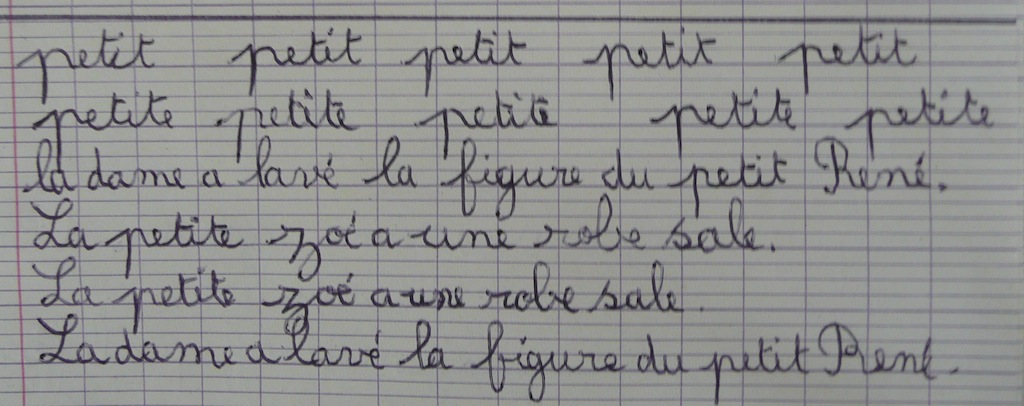 petit petit petit petit petit
petite petite petite petite petite
la dame a lavé la figure du petit René.
La petite zoé a une robe sale.
La petite zoé a une robe sale.
La dame a lavé la figure du petit René.